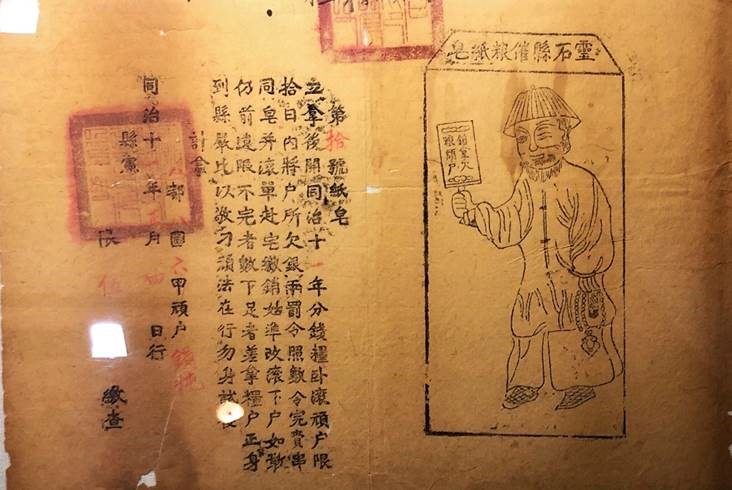 靈石縣催粮紙皂
鎖拿欠
粮頑户
第拾號紙皂
立拿後開同治十一年分錢糧卧滾頑户限
拾日内將户所欠銀兩罰令照數令完賫串
同皂并滾單赴宅繳銷姑準改滾下户如敢
仍前違限不完者數下足者差拿糧户正身
到縣嚴比以儆刁頑法在行勿身試
計拿
部圖六甲頑户
同治十一年月日行
縣憲
限繳查